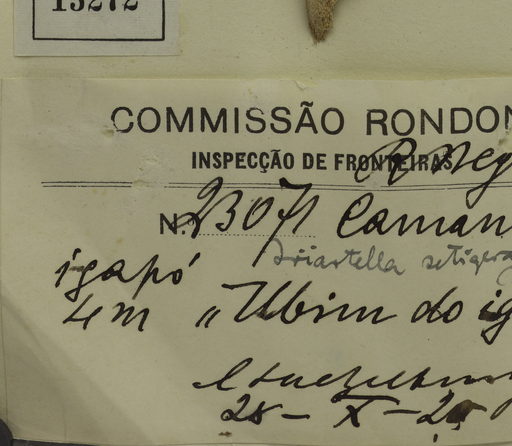 13272
COMMISSÃO RONDON
INSPECÇÃO DE FRONTEIRAS
R. Neg
N.º 23071 Caman
Iriartella setigera
igapó
4 m "Ubim do ig
28 - X - 2